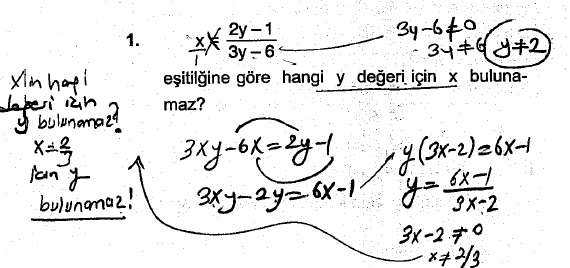 1. x/1 = (2y-1)/(3y-6)
eşitliğine göre hangi y değeri için x buluna-
maz?
3y-6≠0
3y≠6 y≠2
x'in hangi
değeri için
y bulunamaz?
x=2/3
için y
bulunamaz!
3xy-6x=2y-1
3xy-2y=6x-1
y(3x-2)=6x-1
y=(6x-1)/(3x-2)
3x-2≠0
x≠2/3